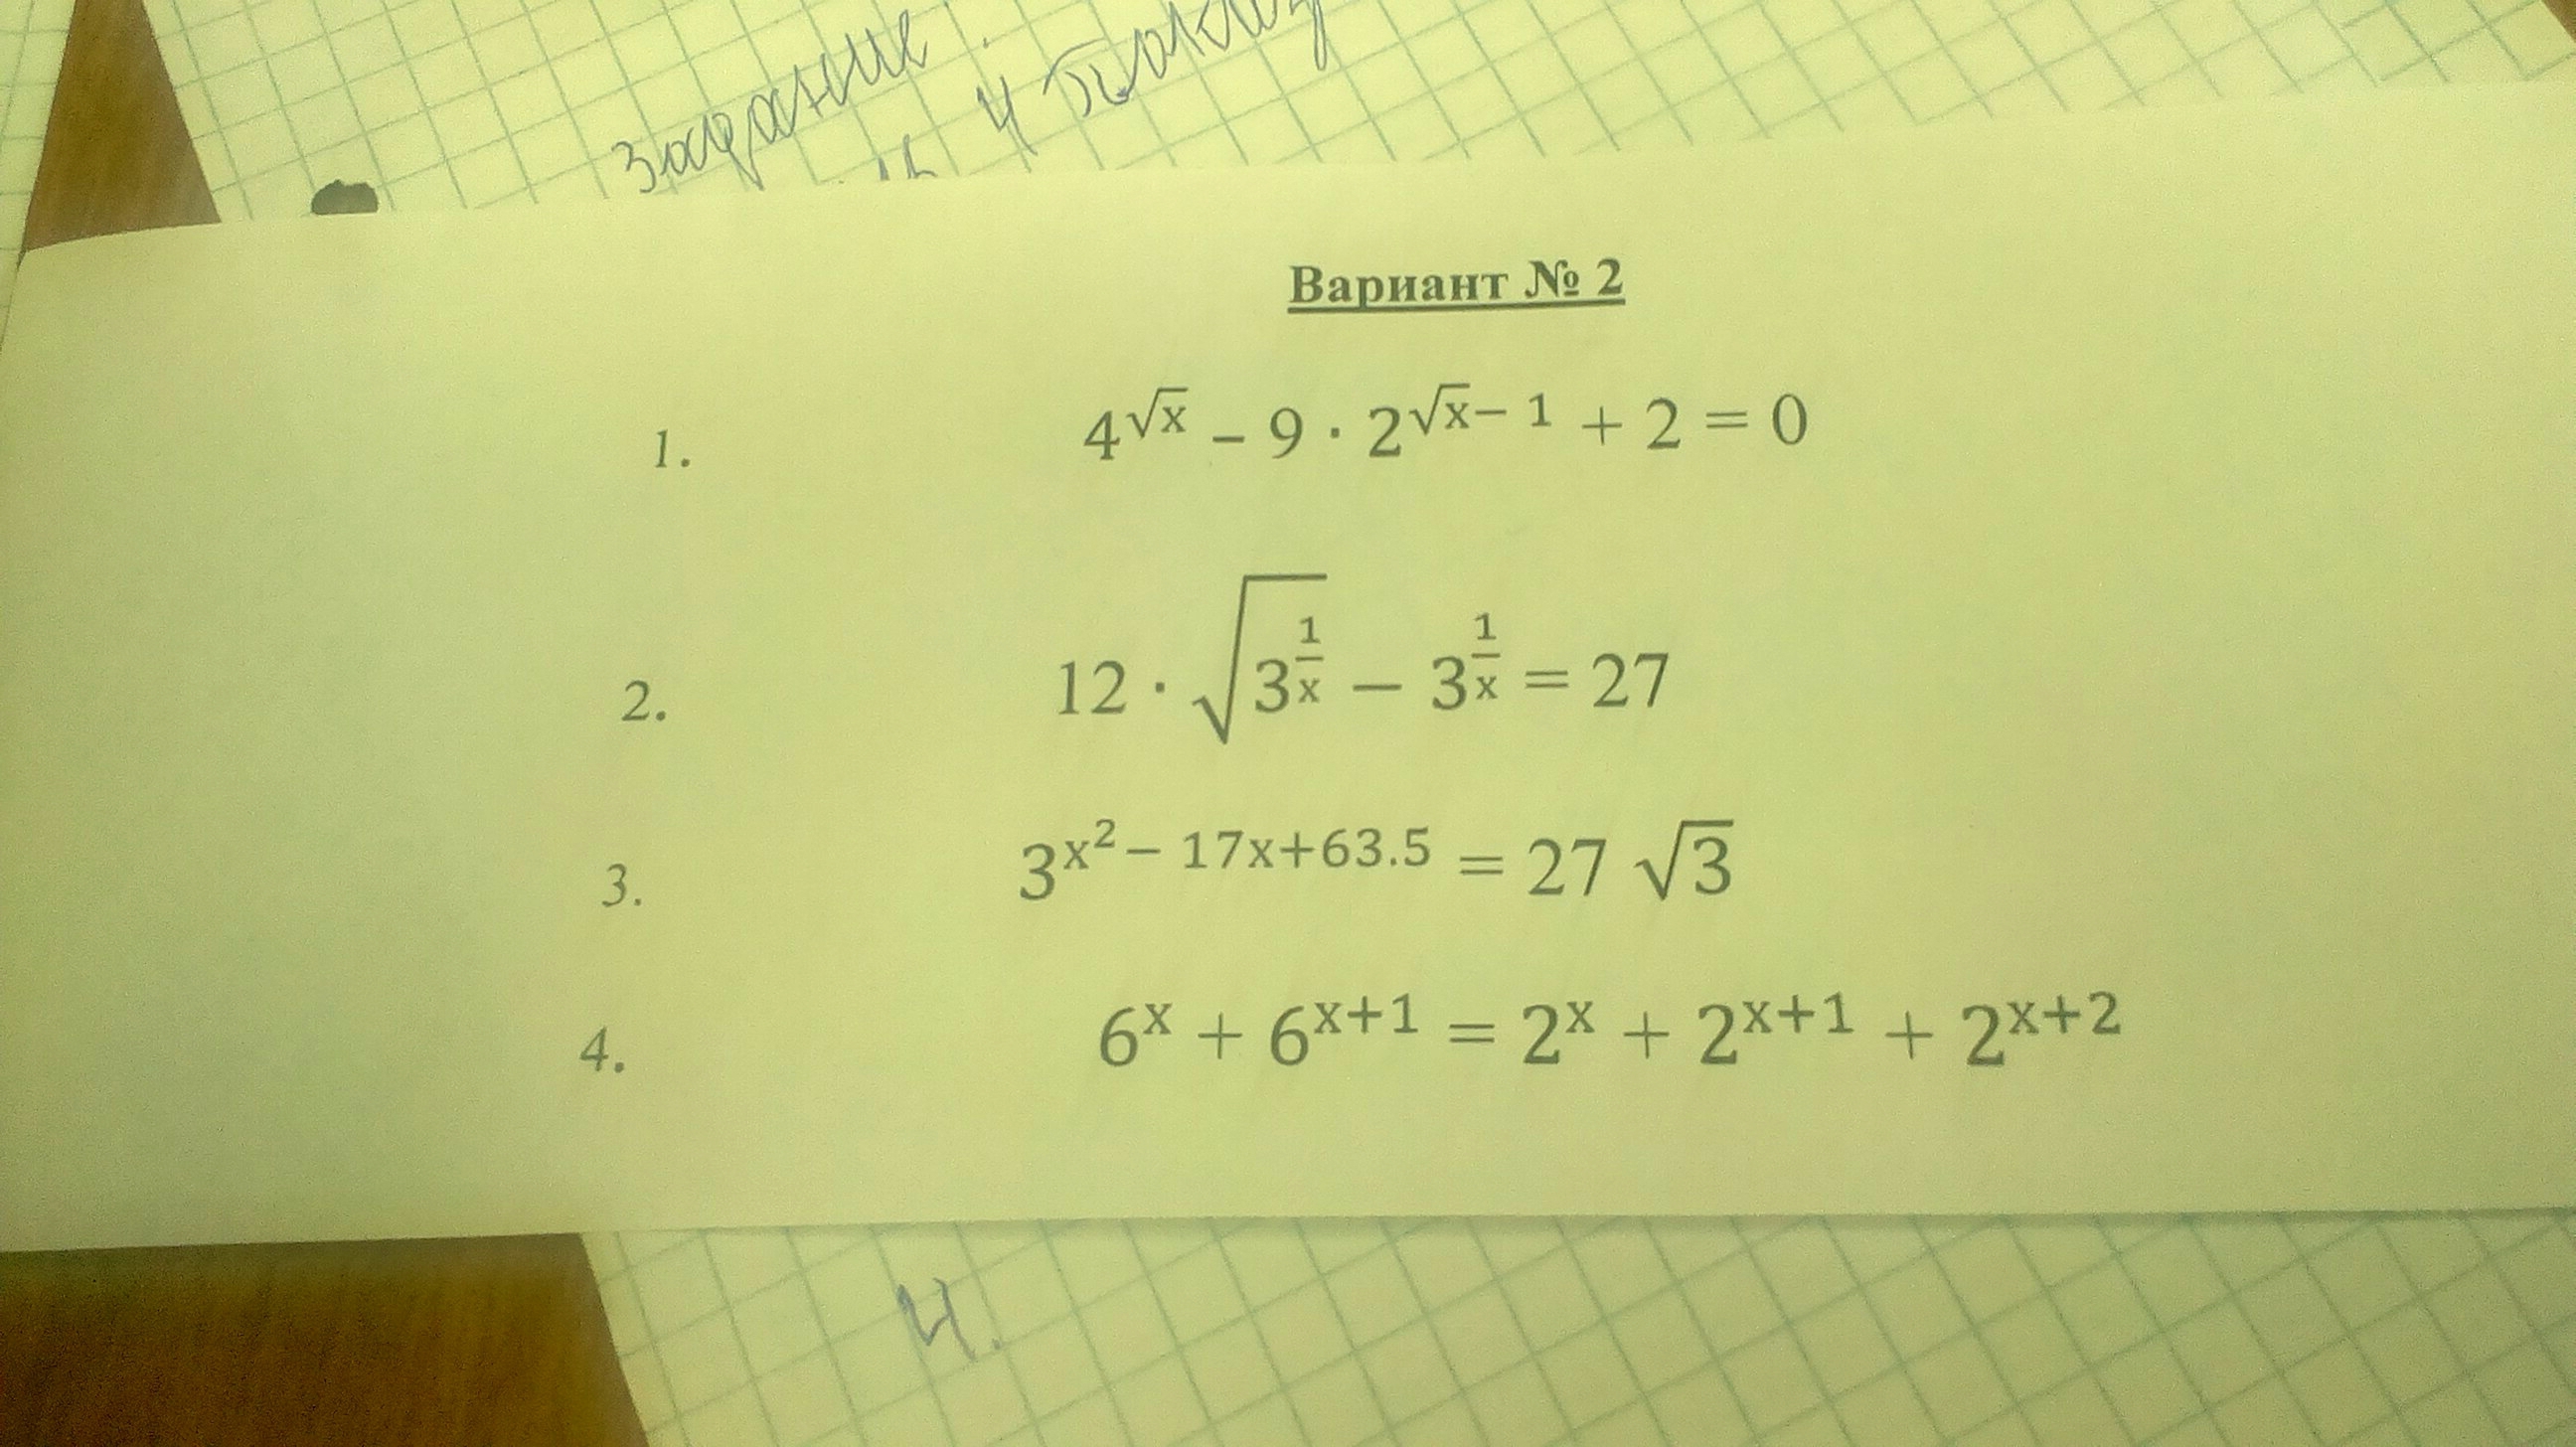 задание.
4
Вариант № 2
1. 4^√x – 9 · 2^(√x– 1) + 2 = 0
2. 12 · √(3^(1/x)) – 3^(1/x) = 27
3. 3^(x²– 17x+63.5) = 27 √3
4. 6^x + 6^(x+1) = 2^x + 2^(x+1) + 2^(x+2)
4.